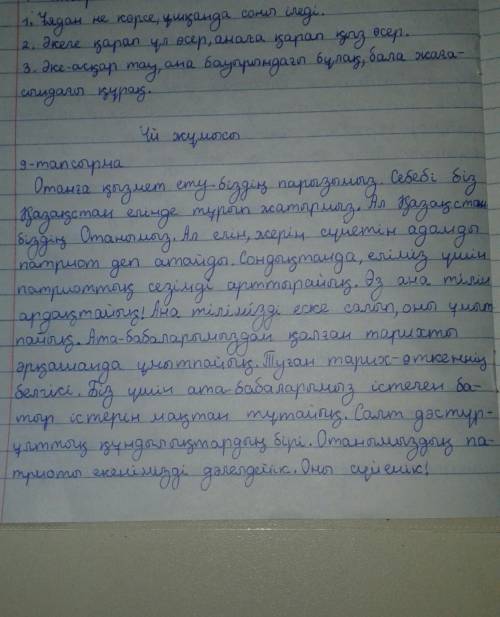 1. Ұядан не көрсе, ұшқанда соны іледі.
2. Әкеге қарап ұл өсер, анаға қарап қыз өсер.
3. Әке-асқар тау, ана бауырындағы бұлақ, бала жаға-
сындағы құрақ.
Үй жұмысы
9-тапсырма
Отанға қызмет ету-біздің парызымыз. Себебі біз
Қазақстан елінде тұрып жатырмыз. Ал Қазақстан
біздің Отанымыз. Ал елін, жерін сүйетін адамды
патриот деп атайды. Сондықтанда, еліміз үшін
патриоттық сезімді арттырайық. Өз ана тілін
ардақтайық! Ана тілімізді еске салып, оны ұмыт
пайық. Ата-бабаларымыздан қалған тарихты
әрқашанда ұмытпайық. Туған тарих-өткеннің
белгісі. Біз үшін ата-бабаларымыз істеген ба-
тыр істерін мақтан тұтайық. Салт дәстүр-
ұлттық құндылықтардың бірі. Отанымыздың па-
триоты екенімізді дәлелдейік. Оны сүйейік!